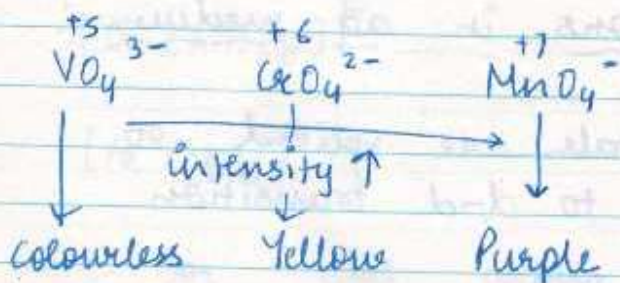 +5 +6 +7
VO₄³⁻ CrO₄²⁻ MnO₄⁻
intensity ↑
Colourless Yellow Purple